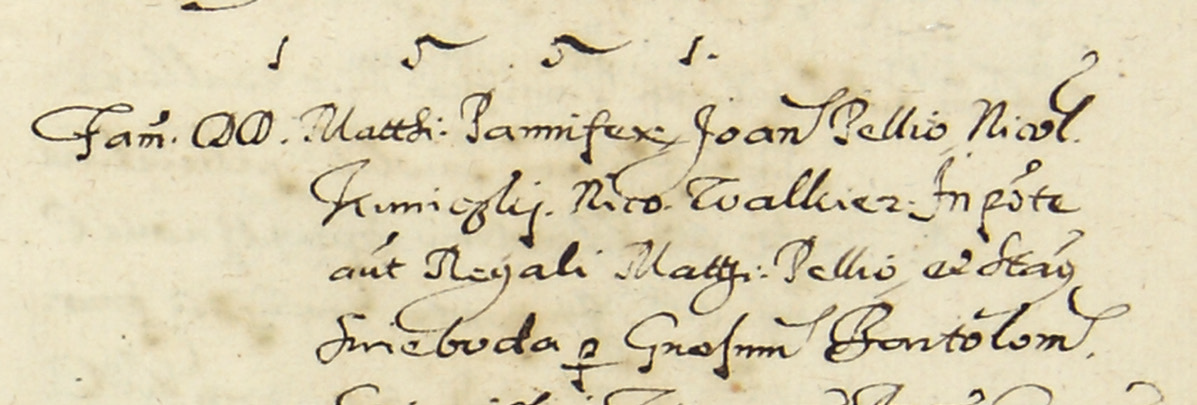 1 5 5 1.
Fam. DD. Matthi: Pannifex Joan Pellio Nicol.
Nico. Walkier. In pote
aut Regali Matthi: Pellio et Stan
Swieboda p Gnosum Bartolom.